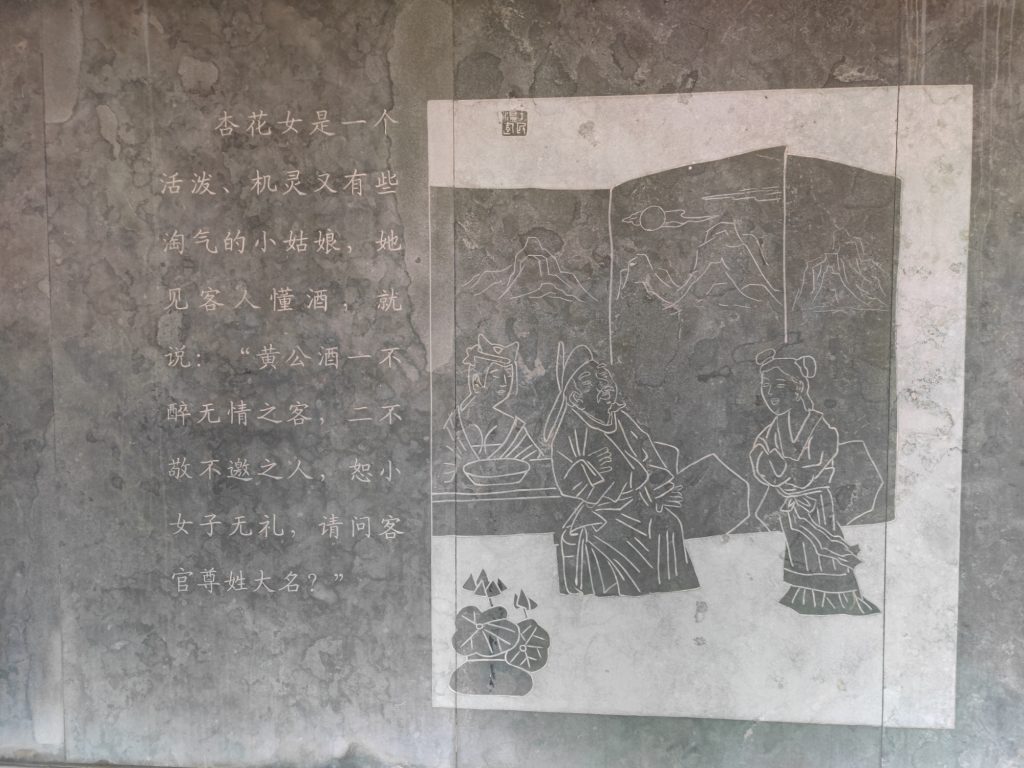 杏花女是一个
活泼、机灵又有些
淘气的小姑娘，她
见客人懂酒，就
说：“黄公酒一不
醉无情之客，二不
敬不邀之人，恕小
女子无礼，请问客
官尊姓大名？”